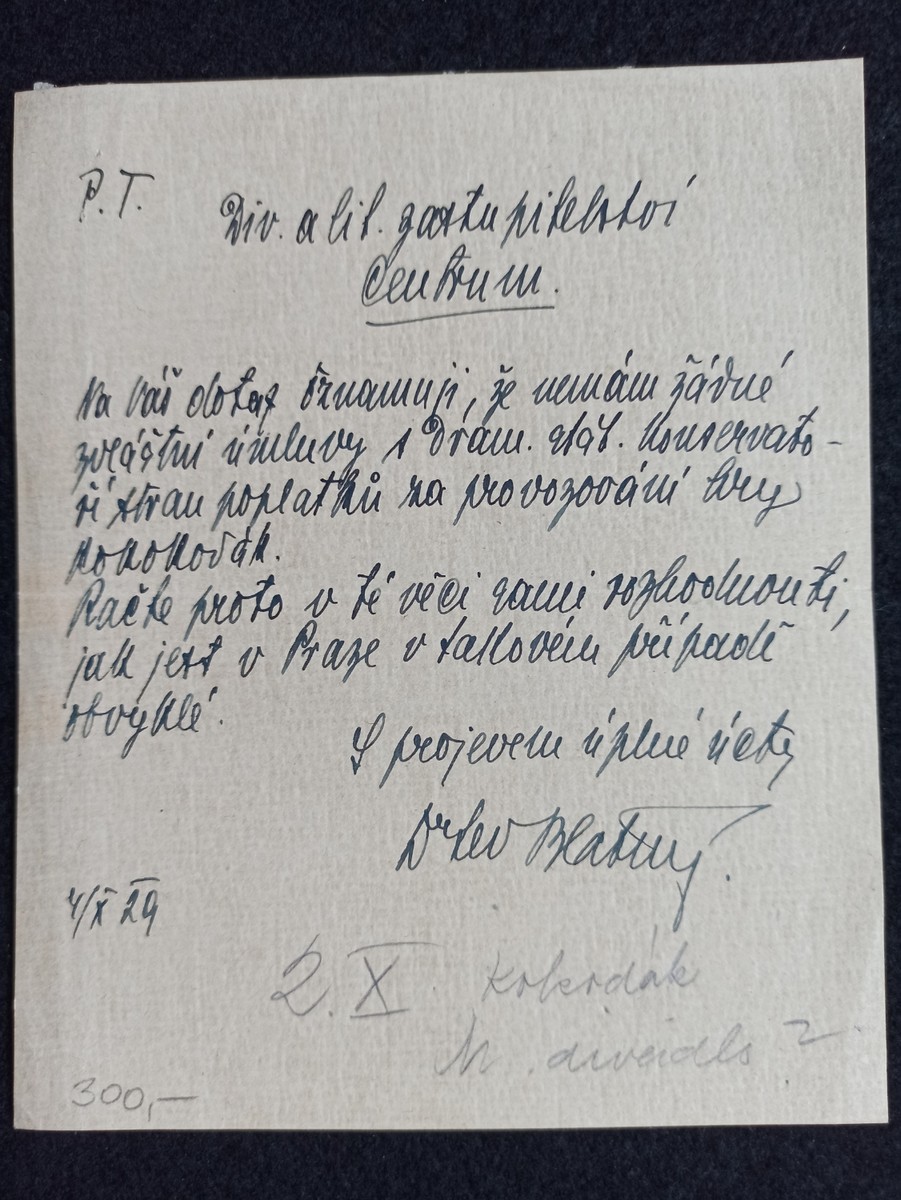 P. T.
Div. a lit. zastupitelství
Centrum.
Na Váš dotaz oznamuji, že nemám žádné
zvláštní úmluvy s Dram. stát. Konservato-
ří stran poplatků za provozování hry
Kokokodák.
Račte proto v té věci sami rozhodnouti,
jak jest v Praze v takovém případě
obvyklé.
S projevem úplné úcty
Dr Lev Blatný.
4/X 29
2. X. Kokodák
divadlo
300,—